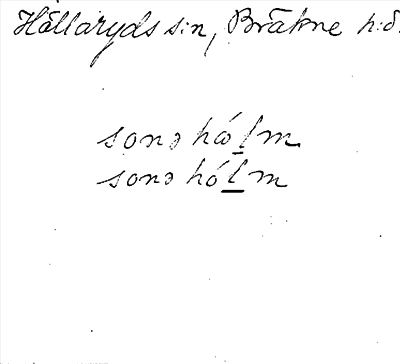 Hällaryds s:n, Bräkne h:d.
sonə hó̵lm
sonə hólm